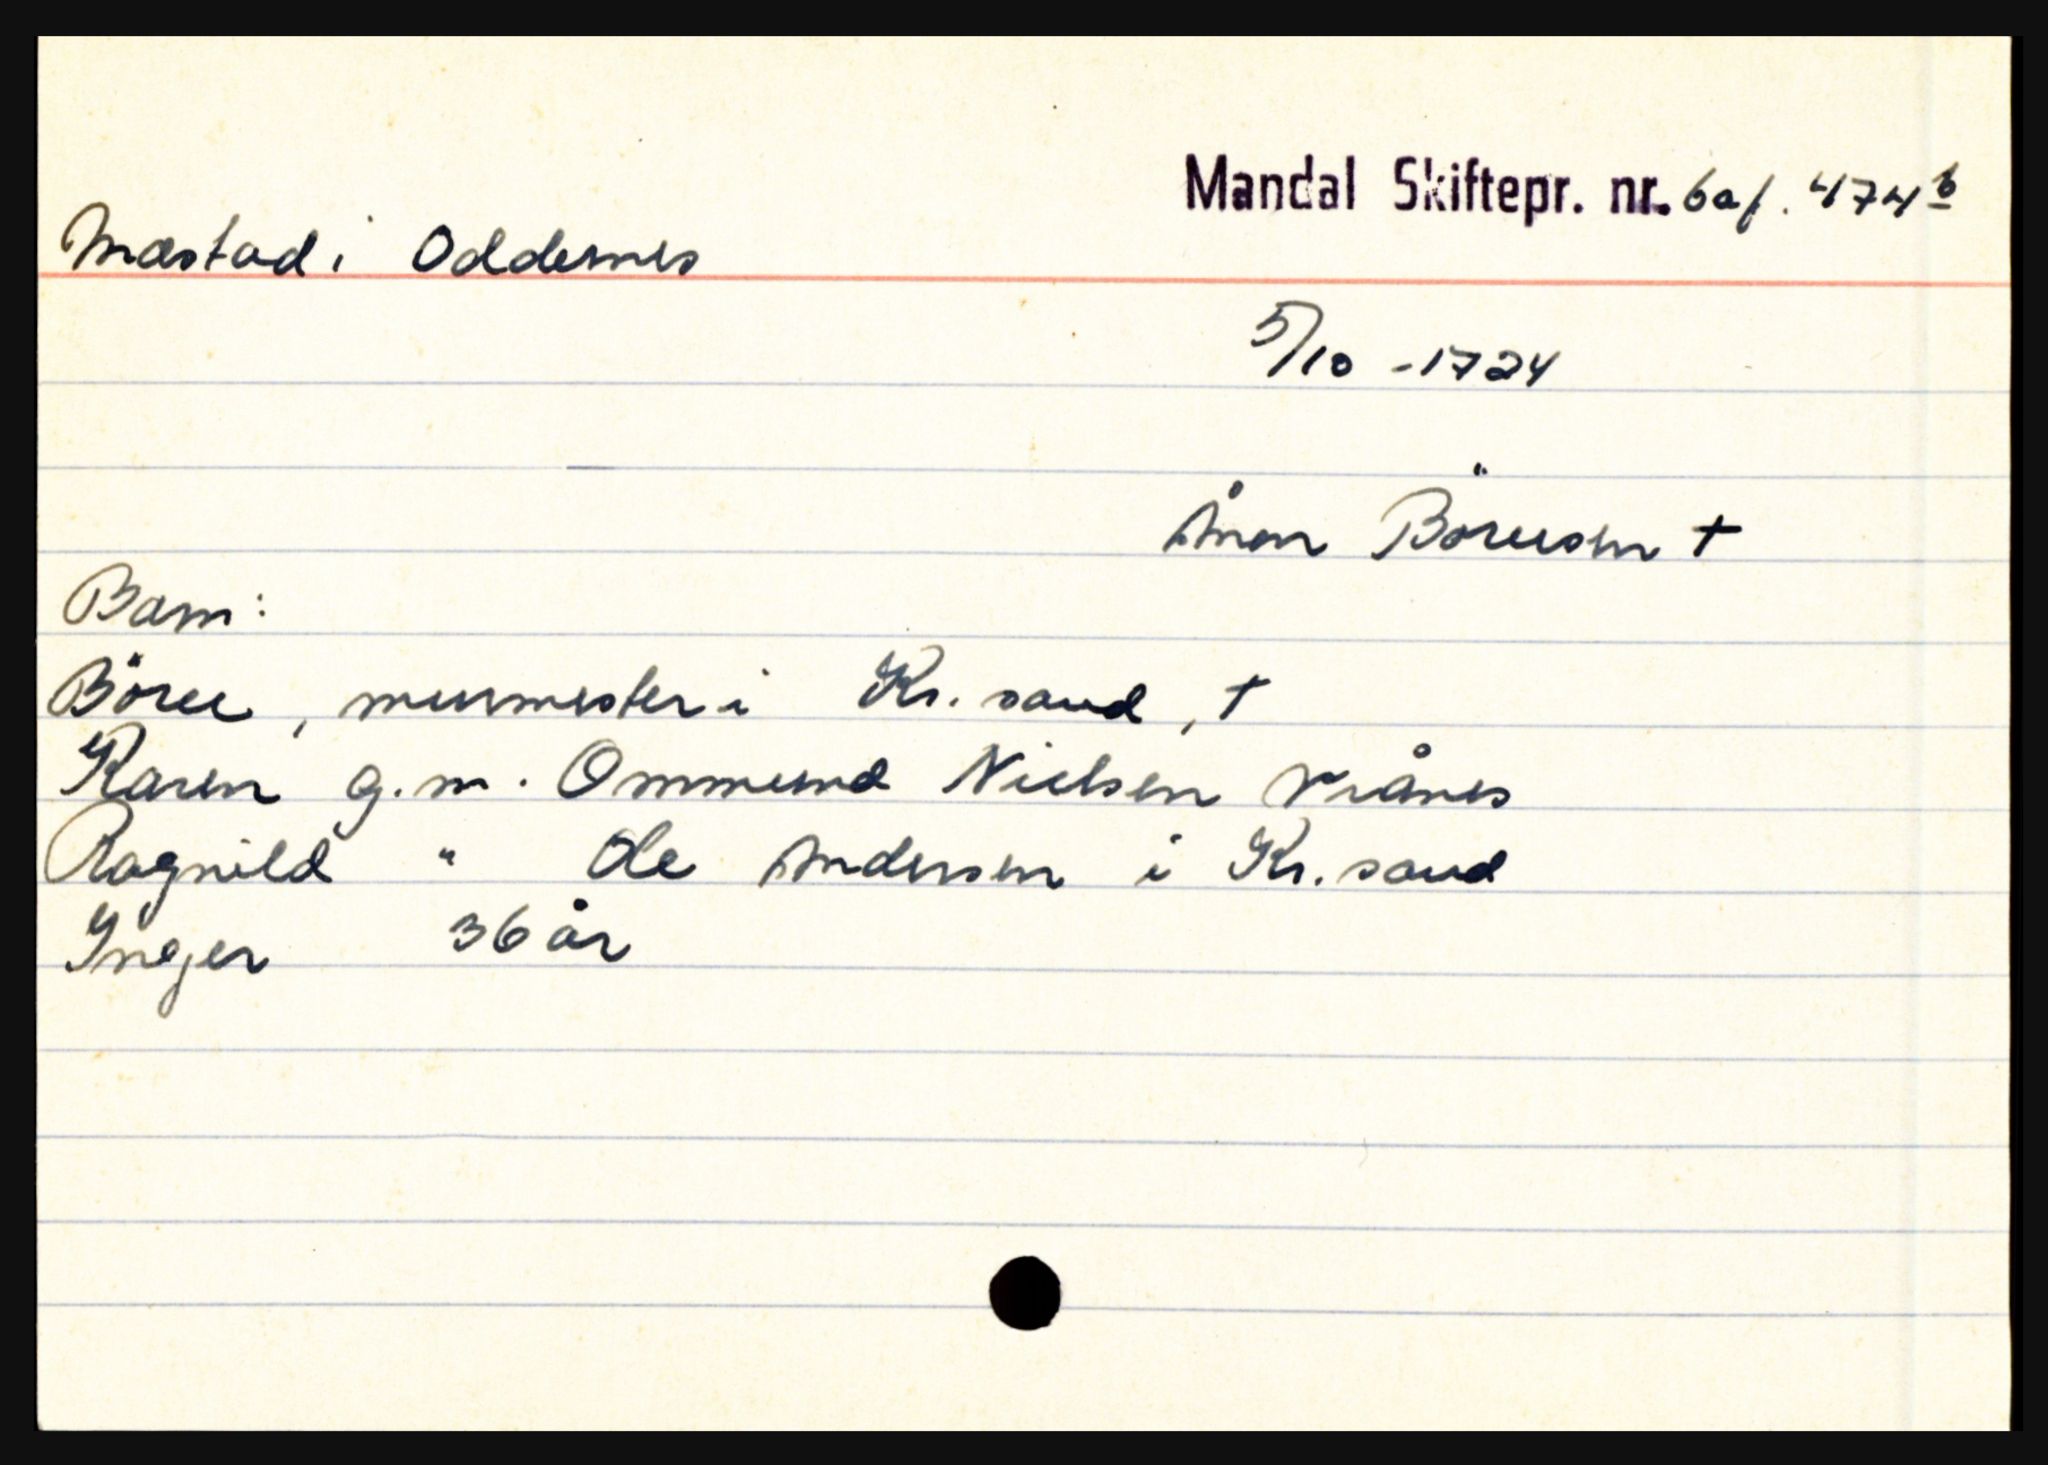 Mandal Skiftepr. nr. 6a f. 474 b
Mastad i Oddernes
5/10 - 1724
Ånon Börresen †
Barn:
Börre, murmester i Kr. sand, †
Karen g. m. Ommund Nielsen Vrånes
Ragnild " Ole Andersen i Kr. sand
Inger 36 år